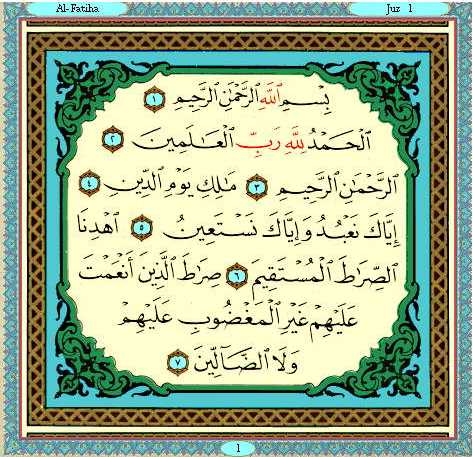 Al-Fatiha Juz 1
بِسْمِ اللَّهِ الرَّحْمَٰنِ الرَّحِيمِ ١
الْحَمْدُ لِلَّهِ رَبِّ الْعَالَمِينَ ٢
الرَّحْمَٰنِ الرَّحِيمِ ٣ مَالِكِ يَوْمِ الدِّينِ ٤
إِيَّاكَ نَعْبُدُ وَإِيَّاكَ نَسْتَعِينُ ٥ اهْدِنَا
الصِّرَاطَ الْمُسْتَقِيمَ ٦ صِرَاطَ الَّذِينَ أَنْعَمْتَ
عَلَيْهِمْ غَيْرِ الْمَغْضُوبِ عَلَيْهِمْ
وَلَا الضَّالِّينَ ٧
1